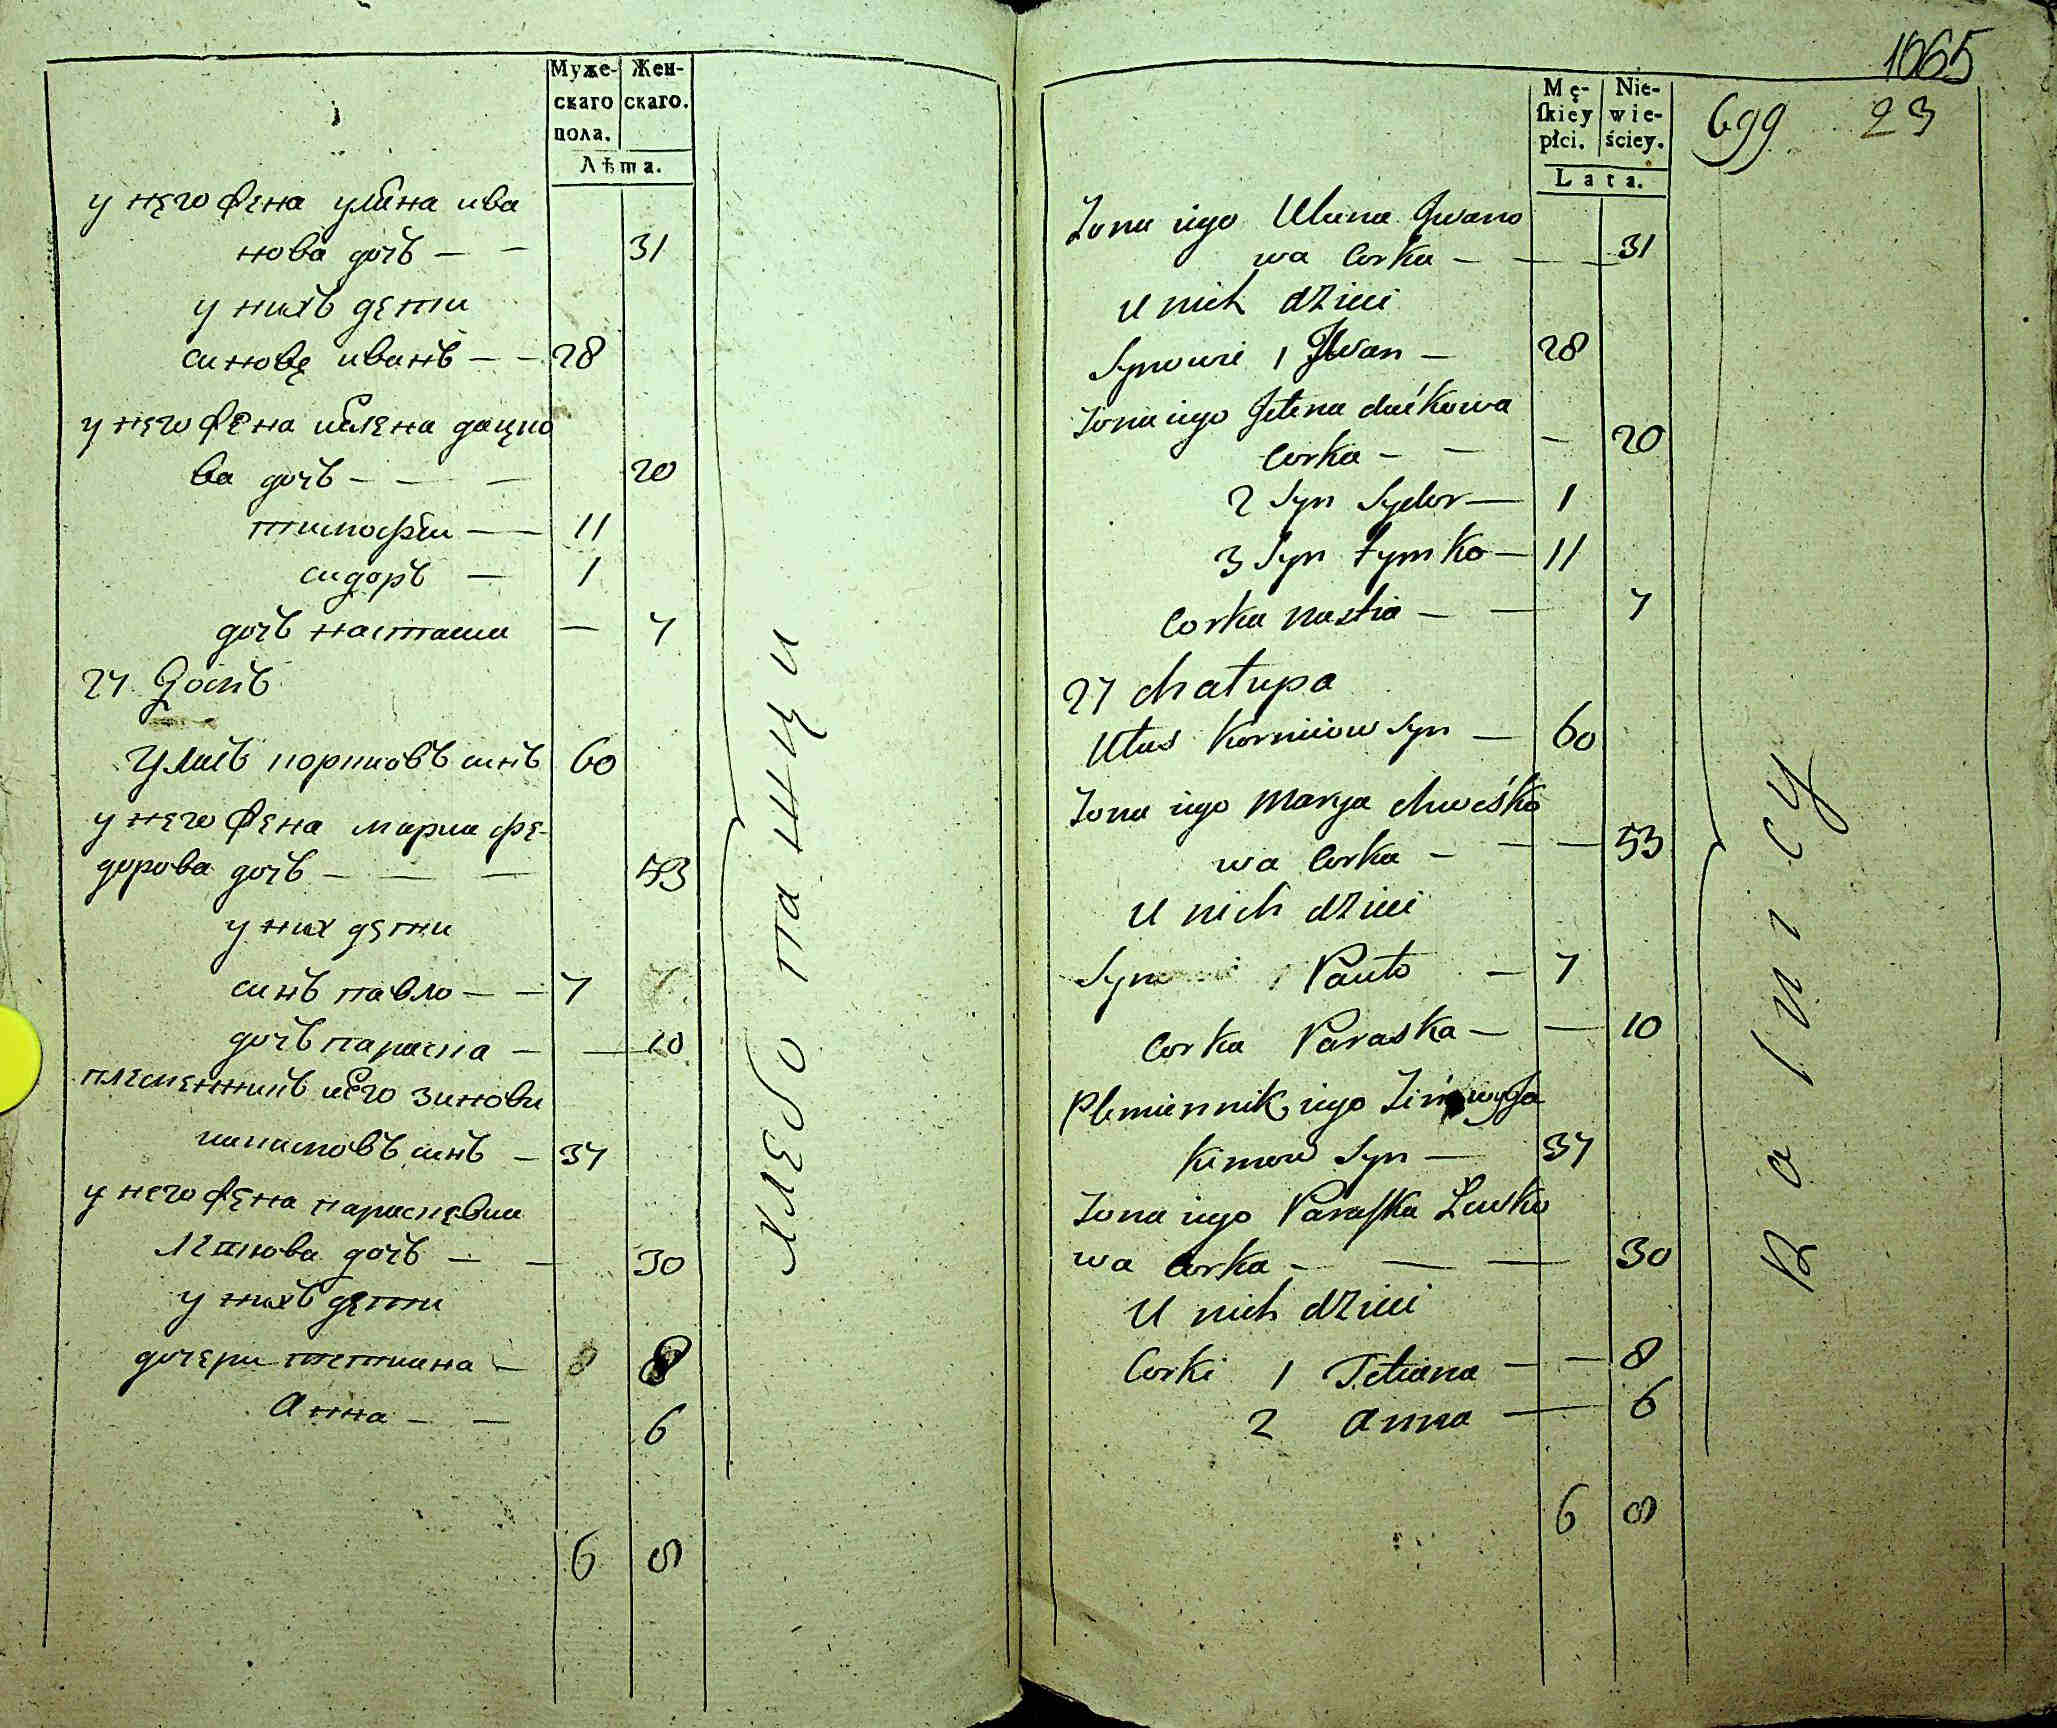 Муже-
скаго
пола.
Жен-
скаго.
Лѣта.
у него жена улiана ива
нова дочъ — — 31
у нихъ дети
синове иванъ — — 28
у него жена иелена дацко
ва дочъ — — — 20
тимофеи — — 11
сидоръ — 1
дочъ настасиа — 7
27 Домъ
Уласъ корниовъ синъ 60
у него жена мариа фе-
дорова дочъ — — — 53
у них дети
синъ павло — — 7
дочъ параска — — 10
племенникъ иего зинови
иакимовъ синъ — 37
у него жена параскевиа
левкова дочъ — — 30
у нихъ дети
дочери тетиана — 8
Анна — — 6
6 8
хлебопашци
1065
699 23
Mę-
skiey
płci.
Nie-
wie-
ściey.
Lata.
Zona iego Ulana Jwano
wa Corka — — — 31
U nich dzieci
Synowie 1 Jwan — 28
Zona iego Jelena daćkowa
Corka — — — 20
2 Syn Sydor — 1
3 Syn Tymko — 11
Corka Nastia — — 7
27 Chałupa
Ułas Korniiow Syn — 60
Zona iego Marya Chweśko
wa Corka — — — 53
U nich dzieci
Syn Pawło — 7
Corka Paraska — — 10
Plemiennik iego Zinowy Ja
kimow Syn — 37
Zona iego Paraska Lewko
wa Corka — — — 30
U nich dzieci
Corki 1 Tetiana — — 8
2 Anna — 6
6 8
Rolnicy